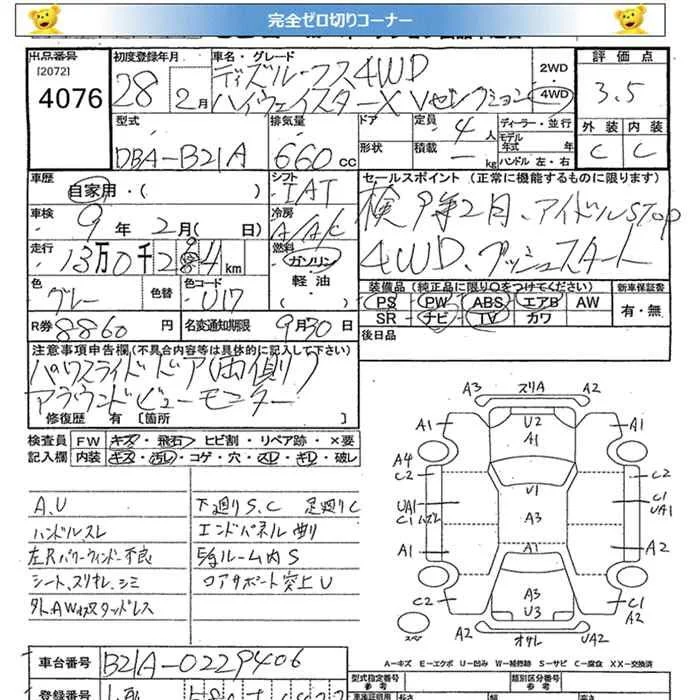 完全ゼロ切りコーナー
出品番号
[2072]
4076
初度登録年月
28年 2月
車名・グレード
ディズルークス4WD
ハイウェイスターX Vセレクション
2WD
4WD
評価点
3.5
外装 内装
C C
型式
DBA-B21A
排気量
660 cc
ドア
形状
定員 4人
積載 — kg
ディーラー・並行
モデル
年式 年
ハンドル 左・右
車歴
自家用・( )
シフト
IAT
セールスポイント (正常に機能するものに限ります)
検9年2月、アイドルSTOP
4WD、プッシュスタート
車検
9年2月( 日)
冷房
A/AC
走行
13万0千284km
燃料
ガソリン
軽油
( )
色
グレー
色替
色コード
U17
装備品 (純正品に限り○をつけてください)
PS PW ABS エアB AW
SR ナビ TV カワ
新車保証書
有・無
R券 8860円
名変通知期限 9月30日
後日品
注意事項申告欄(不具合内容等は具体的に記入して下さい)
パワスライドドア(両側)
アラウンドビューモニター
修復歴 有 [箇所 ]
検査員 FW キズ・飛石・ヒビ割・リペア跡・×要
記入欄 内装 キズ・汚レ・コゲ・穴・スレ・キレ・破レ
A.U
ハンドルスレ
左Rパワーウィンドー不良
シート、スリオレ、シミ
下廻りS.C 足廻りC
エンドパネル曲り
ルーム内S
コアサポート突上U
A3 スリA A2
A1 U2 A1
A1
A4
C2 U1 C2
UA1 C1
C1 A3 UA1
A1 A1 A2
C2 A3 C1
U3 A2
スペア
A2 オサレ UA2
A-キズ E-エクボ U-凹み W-補修跡 S-サビ C-腐食 XX-交換済
車台番号 B21A-0229406
型式指定番号
参考
類別区分番号
参考
登録番号
車検証明用
長さ